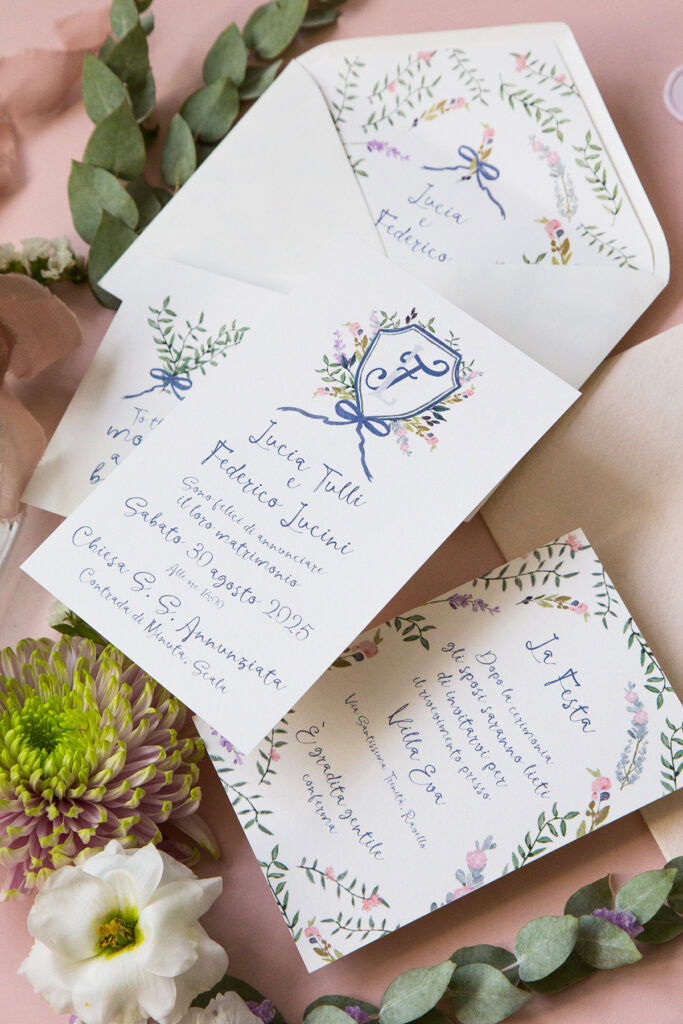 Lucia
e
Federico
Lucia Tulli
e
Federico Lucini
Sono felici di annunciare
il loro matrimonio
Sabato 30 agosto 2025
Alle ore 16:00
Chiesa S. S. Annunziata
Contrada di Minuta, Scala
La Festa
Dopo la cerimonia
gli sposi saranno lieti
di invitarvi per
il rivevimento presso
Villa Eva
Via Santissima Trinità, Ravello
È gradita gentile
conferma